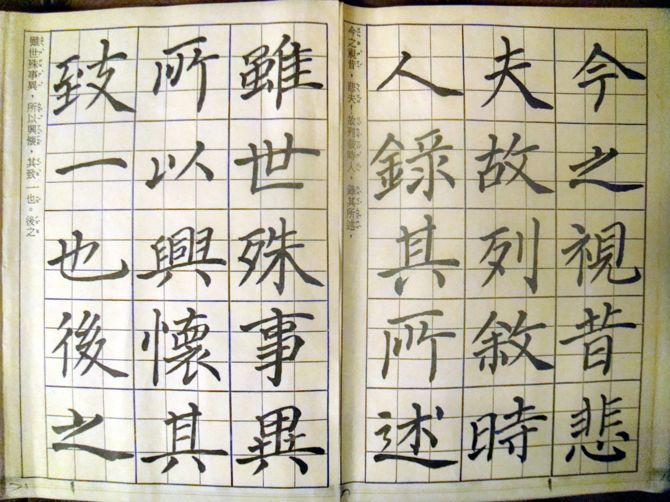 今之視昔悲
夫故列敘時
人錄其所述
今之視昔，悲夫！故列敘時人，錄其所述，
雖世殊事異
所以興懷其
致一也後之
雖世殊事異，所以興懷，其致一也。後之